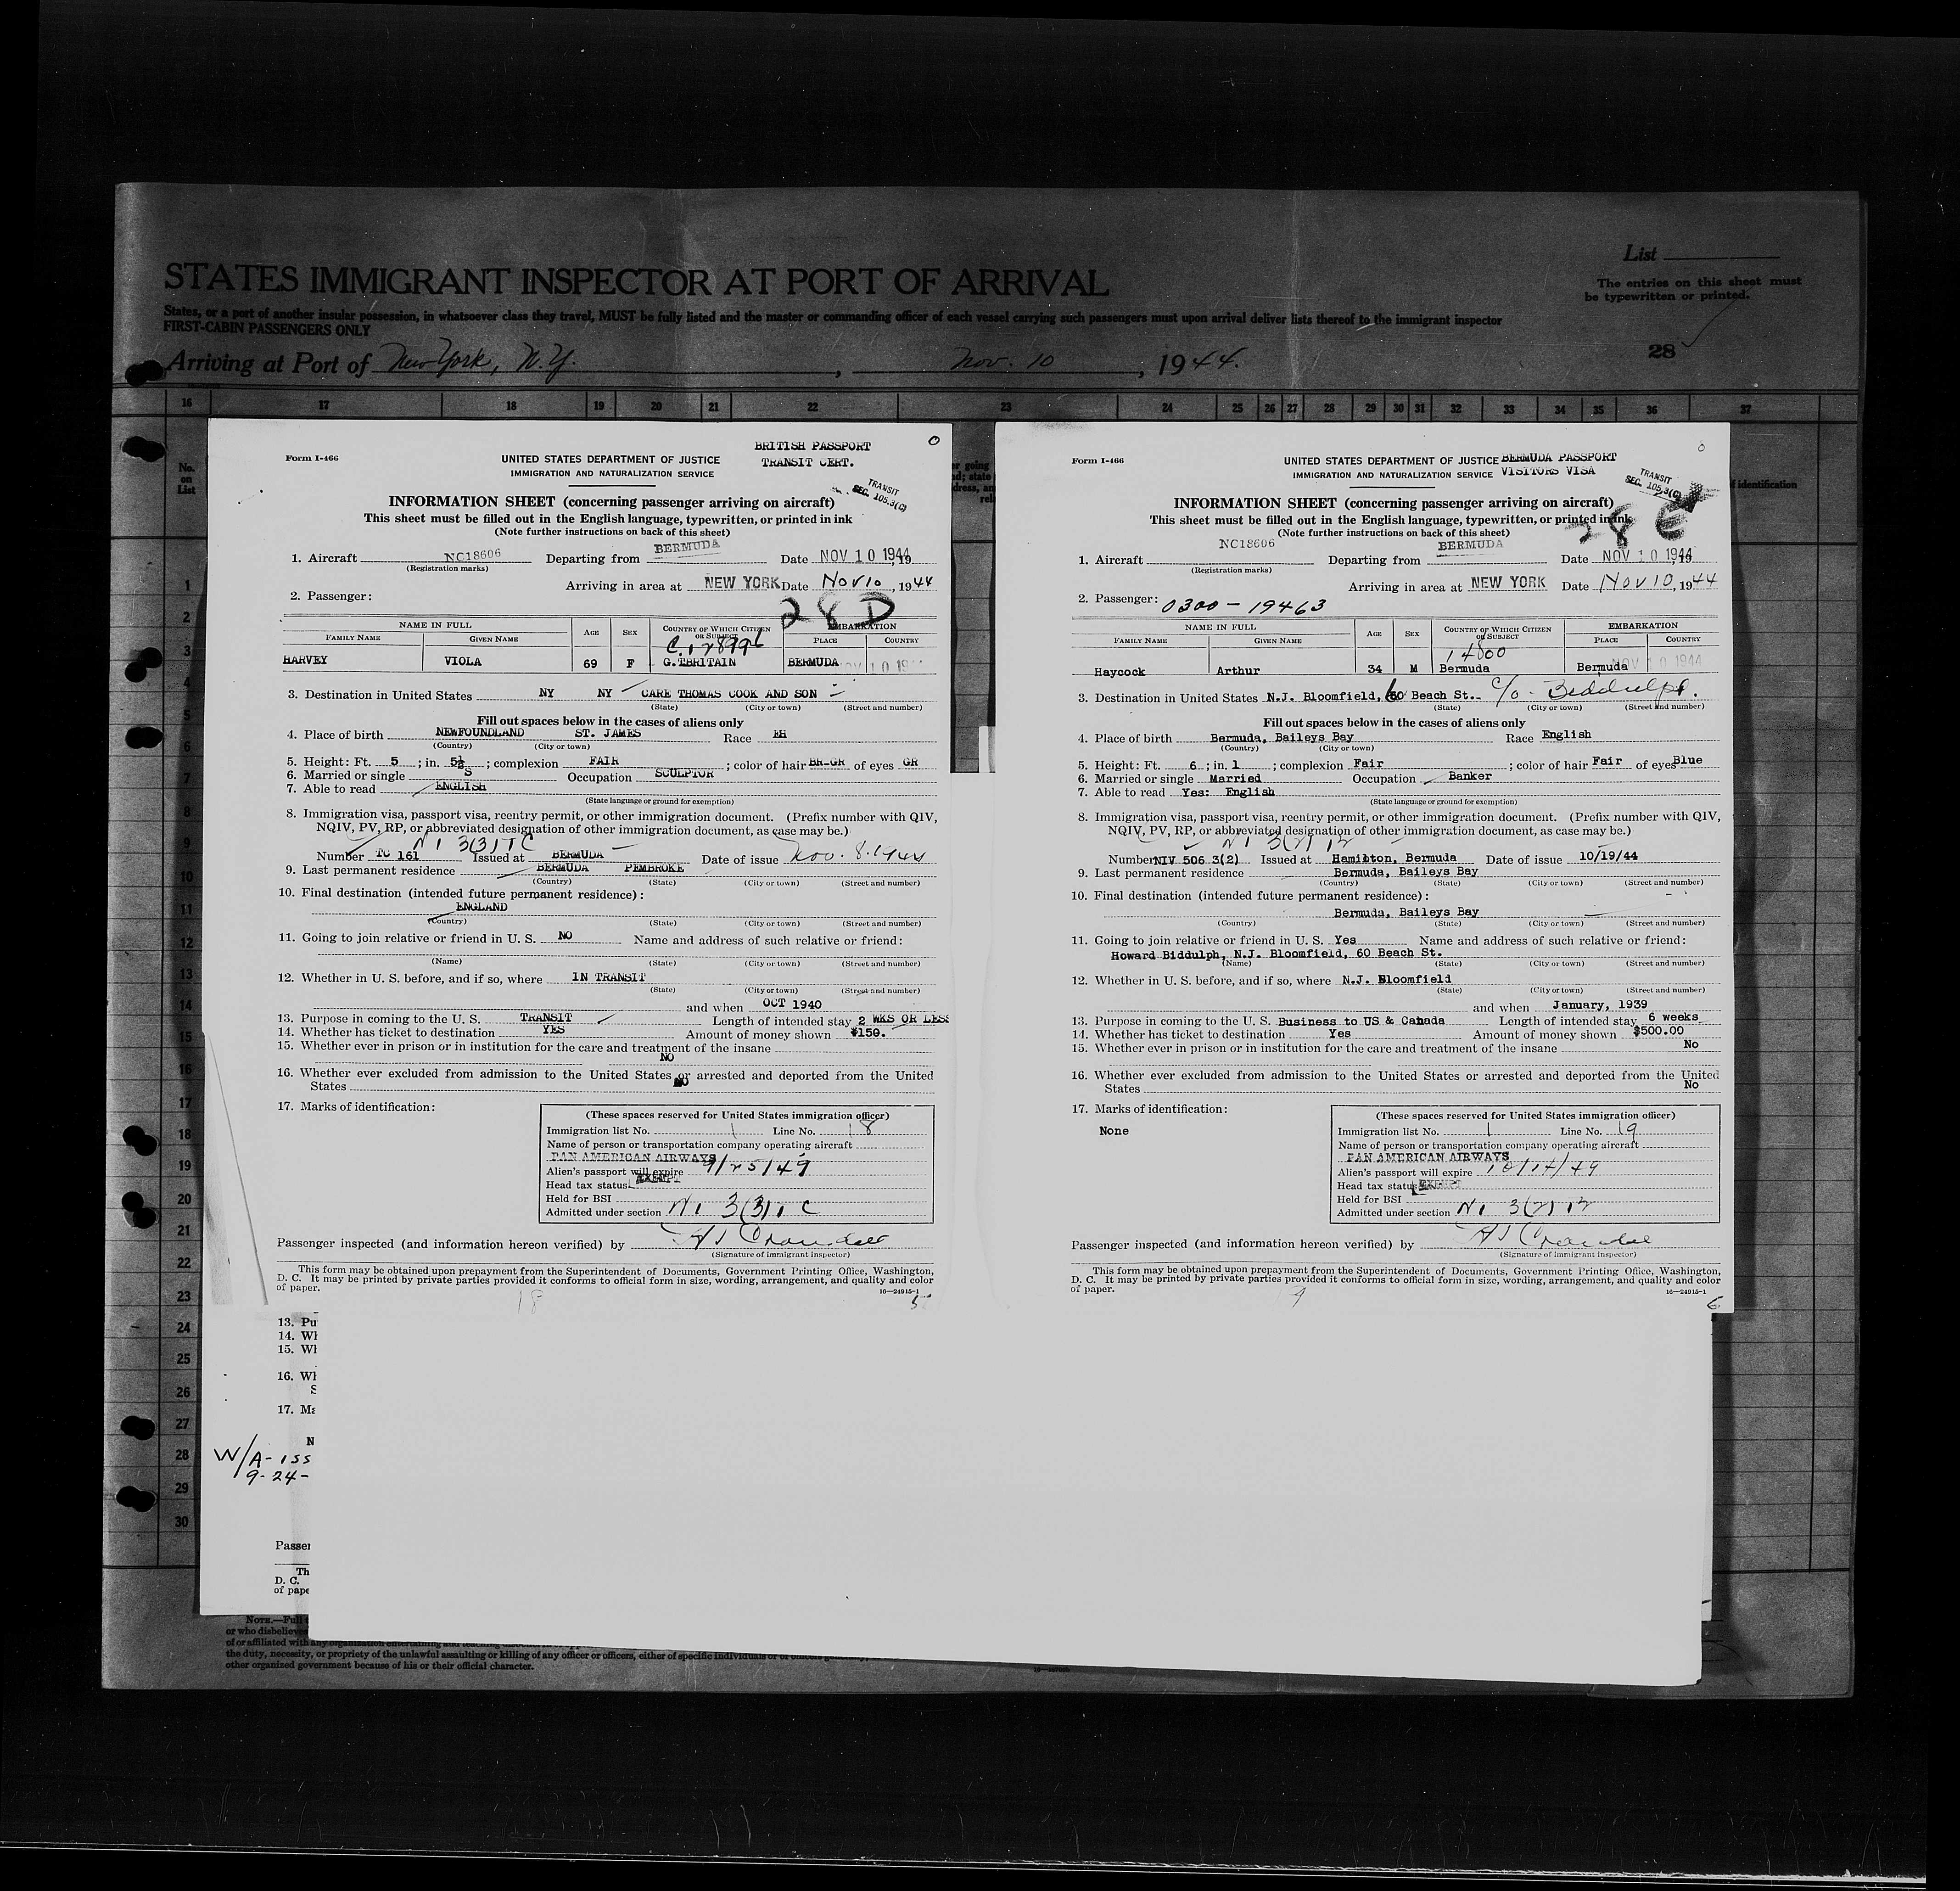 STATES IMMIGRANT INSPECTOR AT PORT OF ARRIVAL
List
The entries on this sheet must
be typewritten or printed.
States, or a port of another insular possession, in whatsoever class they travel, MUST be fully listed and the master or commanding officer of each vessel carrying such passengers must upon arrival deliver lists thereof to the immigrant inspector
FIRST-CABIN PASSENGERS ONLY
28
Arriving at Port of New York, N.Y., Nov. 10, 1944.
16 17 18 19 20 21 22 23 24 25 26 27 28 29 30 31 32 33 34 35 36 37
No.
on
List
1
2
3
4
5
6
7
8
9
10
11
12
13
14
15
16
17
18
19
20
21
22
23
24
25
26
27
28
29
30
BRITISH PASSPORT
TRANSIT CERT.
Form I-466
UNITED STATES DEPARTMENT OF JUSTICE
IMMIGRATION AND NATURALIZATION SERVICE
TRANSIT
SEC. 105.3(C)
INFORMATION SHEET (concerning passenger arriving on aircraft)
This sheet must be filled out in the English language, typewritten, or printed in ink
(Note further instructions on back of this sheet)
1. Aircraft NC18606 Departing from BERMUDA Date NOV 10 1944, 19
(Registration marks)
Arriving in area at NEW YORK Date Nov 10, 1944
2. Passenger:
28 D
NAME IN FULL AGE SEX COUNTRY OF WHICH CITIZEN OR SUBJECT EMBARKATION
FAMILY NAME GIVEN NAME PLACE COUNTRY
HARVEY VIOLA 69 F G.TBRITAIN BERMUDA
3. Destination in United States NY NY CARE THOMAS COOK AND SON
(State) (City or town) (Street and number)
Fill out spaces below in the cases of aliens only
4. Place of birth NEWFOUNDLAND ST. JAMES Race EH
(Country) (City or town)
5. Height: Ft. 5; in. 5½; complexion FAIR; color of hair BR-GR of eyes GR
6. Married or single S Occupation SCULPTOR
7. Able to read ENGLISH
(State language or ground for exemption)
8. Immigration visa, passport visa, reentry permit, or other immigration document. (Prefix number with QIV,
NQIV, PV, RP, or abbreviated designation of other immigration document, as case may be.)
N1 3(3) TC
Number TC 161 Issued at BERMUDA Date of issue Nov. 8. 1944
9. Last permanent residence BERMUDA PEMBROKE
(Country) (State) (City or town) (Street and number)
10. Final destination (intended future permanent residence):
ENGLAND
(Country) (State) (City or town) (Street and number)
11. Going to join relative or friend in U. S. NO Name and address of such relative or friend:
(Name) (State) (City or town) (Street and number)
12. Whether in U. S. before, and if so, where IN TRANSIT
(State) (City or town) (Street and number)
and when OCT 1940
13. Purpose in coming to the U. S. TRANSIT Length of intended stay 2 WKS OR LESS
14. Whether has ticket to destination YES Amount of money shown $150.
15. Whether ever in prison or in institution for the care and treatment of the insane
NO
16. Whether ever excluded from admission to the United States or arrested and deported from the United
States
17. Marks of identification:
(These spaces reserved for United States immigration officer)
Immigration list No. 1 Line No. 18
Name of person or transportation company operating aircraft
PAN AMERICAN AIRWAYS
Alien's passport will expire 9/25/49
Head tax status EXEMPT
Held for BSI
Admitted under section N1 3(3) TC
Passenger inspected (and information hereon verified) by
(Signature of immigrant inspector)
This form may be obtained upon prepayment from the Superintendent of Documents, Government Printing Office, Washington,
D. C. It may be printed by private parties provided it conforms to official form in size, wording, arrangement, and quality and color
of paper.
16—24915-1
18
5
Form I-466
UNITED STATES DEPARTMENT OF JUSTICE BERMUDA PASSPORT
IMMIGRATION AND NATURALIZATION SERVICE VISITORS VISA
TRANSIT
SEC. 105.3(C)
INFORMATION SHEET (concerning passenger arriving on aircraft)
This sheet must be filled out in the English language, typewritten, or printed in ink
28 E
(Note further instructions on back of this sheet)
1. Aircraft NC18606 Departing from BERMUDA Date NOV 10 1944
(Registration marks)
Arriving in area at NEW YORK Date Nov 10, 1944
2. Passenger: 0300-19463
NAME IN FULL AGE SEX COUNTRY OF WHICH CITIZEN OR SUBJECT EMBARKATION
FAMILY NAME GIVEN NAME PLACE COUNTRY
14800
Haycock Arthur 34 M Bermuda Bermuda NOV 10 1944
3. Destination in United States N.J. Bloomfield, 60 Beach St. c/o- Biddulph.
(State) (City or town) (Street and number)
Fill out spaces below in the cases of aliens only
4. Place of birth Bermuda, Baileys Bay Race English
(Country) (City or town)
5. Height: Ft. 6; in. 1; complexion Fair; color of hair Fair of eyes Blue
6. Married or single Married Occupation Banker
7. Able to read Yes: English
(State language or ground for exemption)
8. Immigration visa, passport visa, reentry permit, or other immigration document. (Prefix number with QIV,
NQIV, PV, RP, or abbreviated designation of other immigration document, as case may be.)
Number NIV 506 3(2) Issued at Hamilton, Bermuda Date of issue 10/19/44
9. Last permanent residence Bermuda, Baileys Bay
(Country) (State) (City or town) (Street and number)
10. Final destination (intended future permanent residence):
Bermuda, Baileys Bay
(Country) (State) (City or town) (Street and number)
11. Going to join relative or friend in U. S. Yes Name and address of such relative or friend:
Howard Biddulph, N.J. Bloomfield, 60 Beach St.
(Name) (State) (City or town) (Street and number)
12. Whether in U. S. before, and if so, where N.J. Bloomfield
(State) (City or town) (Street and number)
and when January, 1939
13. Purpose in coming to the U. S. Business to US & Canada Length of intended stay 6 weeks
14. Whether has ticket to destination Yes Amount of money shown $500.00
15. Whether ever in prison or in institution for the care and treatment of the insane No
16. Whether ever excluded from admission to the United States or arrested and deported from the United
States No
17. Marks of identification:
None
(These spaces reserved for United States immigration officer)
Immigration list No. 1 Line No. 19
Name of person or transportation company operating aircraft
PAN AMERICAN AIRWAYS
Alien's passport will expire 10/14/49
Head tax status EXEMPT
Held for BSI
Admitted under section
Passenger inspected (and information hereon verified) by
(Signature of immigrant inspector)
This form may be obtained upon prepayment from the Superintendent of Documents, Government Printing Office, Washington,
D. C. It may be printed by private parties provided it conforms to official form in size, wording, arrangement, and quality and color
of paper.
16—24915-1
6
13. Pu
14. Wh
15. Wh
16. Wh
S
17. Ma
N
W/A-155
9-24-
Passer
Th
D. C.
of pape
NOTE.—Full
or who disbelieves
of or affiliated with any organization entertaining and teaching
the duty, necessity, or propriety of the unlawful assaulting or killing of any officer or officers, either of specific individuals or
other organized government because of his or their official character.